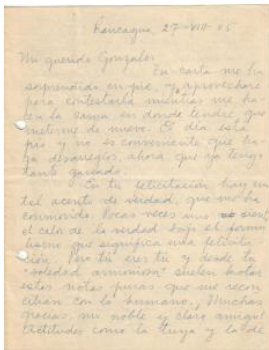 Rancagua, 27-VIII-45
Mi querido Gonzalez:
Tu carta me ha
sorprendido en pie, y aprovecharé
para contestarla mientras me ha
cen la cama, en donde tendré que
meterme de nuevo. El día está
frío y no es conveniente que ha
ya desarreglos, ahora que ya tengo
tanto ganado.
En tu felicitación hay un
tal acento de verdad, que me ha
conmovido. Pocas veces uno
el calor de la verdad bajo el formu
lismo que significa una felicita
ción. Pero tú eres tú y desde tu
"soledad armoniosa" suelen brotar
estas notas puras que me recon
cilian con lo humano. ¡Muchas
gracias, mi noble y claro amigo!
Actitudes como la tuya y la de